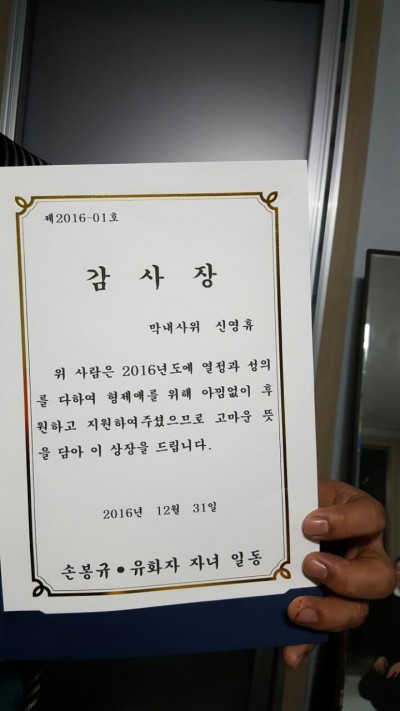 제2016-01호
감 사 장
막내사위 신영휴
위 사람은 2016년도에 열정과 성의
를 다하여 형제애를 위해 아낌없이 후
원하고 지원하여주셨으므로 고마운 뜻
을 담아 이 상장을 드립니다.
2016년 12월 31일
손봉규 • 유화자 자녀 일동